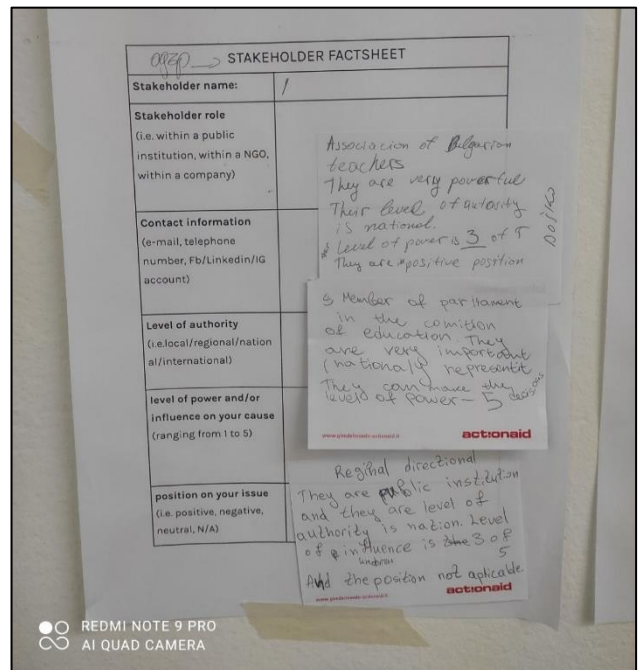 STAKEHOLDER FACTSHEET
Stakeholder name:
Stakeholder role
(i.e. within a public
institution, within a NGO,
within a company)
Contact information
(e-mail, telephone
number, Fb/Linkedin/IG
account)
Level of authority
(i.e.local/regional/nation
al/international)
level of power and/or
influence on your cause
(ranging from 1 to 5)
position on your issue
(i.e. positive, negative,
neutral, N/A)
Association of Bulgarian
teachers
They are very powerful
Their level of autosity
is national.
level of power is 3 of 5
They are positive position
Member of parliament
in the comition
of education. They
are very important
(nationaly representit
They can make the decisions
levels of power - 5
www.giedelmondo-actionaid.it
actionaid
Reginal directional
They are public institution
and they are level of
authority is nation. Level
of influence is 3 of
5
And the position not aplicable
actionaid
REDMI NOTE 9 PRO
AI QUAD CAMERA